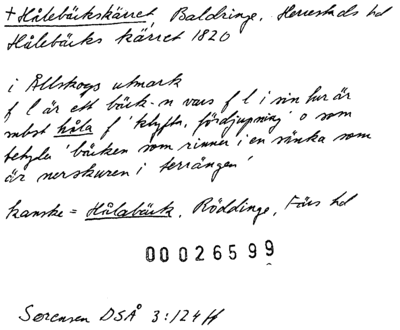 + Hålebäckskärret, Baldringe, Herrestads hd
Hålebäcks kärret 1820
i Allskogs utmark
f l är ett bäck-n vars f l i sin tur är
subst håla f 'klyfta, fördjupning' o som
betyder 'bäcken som rinner i en sänka som
är nerskuren i terrängen'
kanske = Hålabäck, Röddinge, Färs hd
00026599
Sørensen DSÅ 3:124 ff